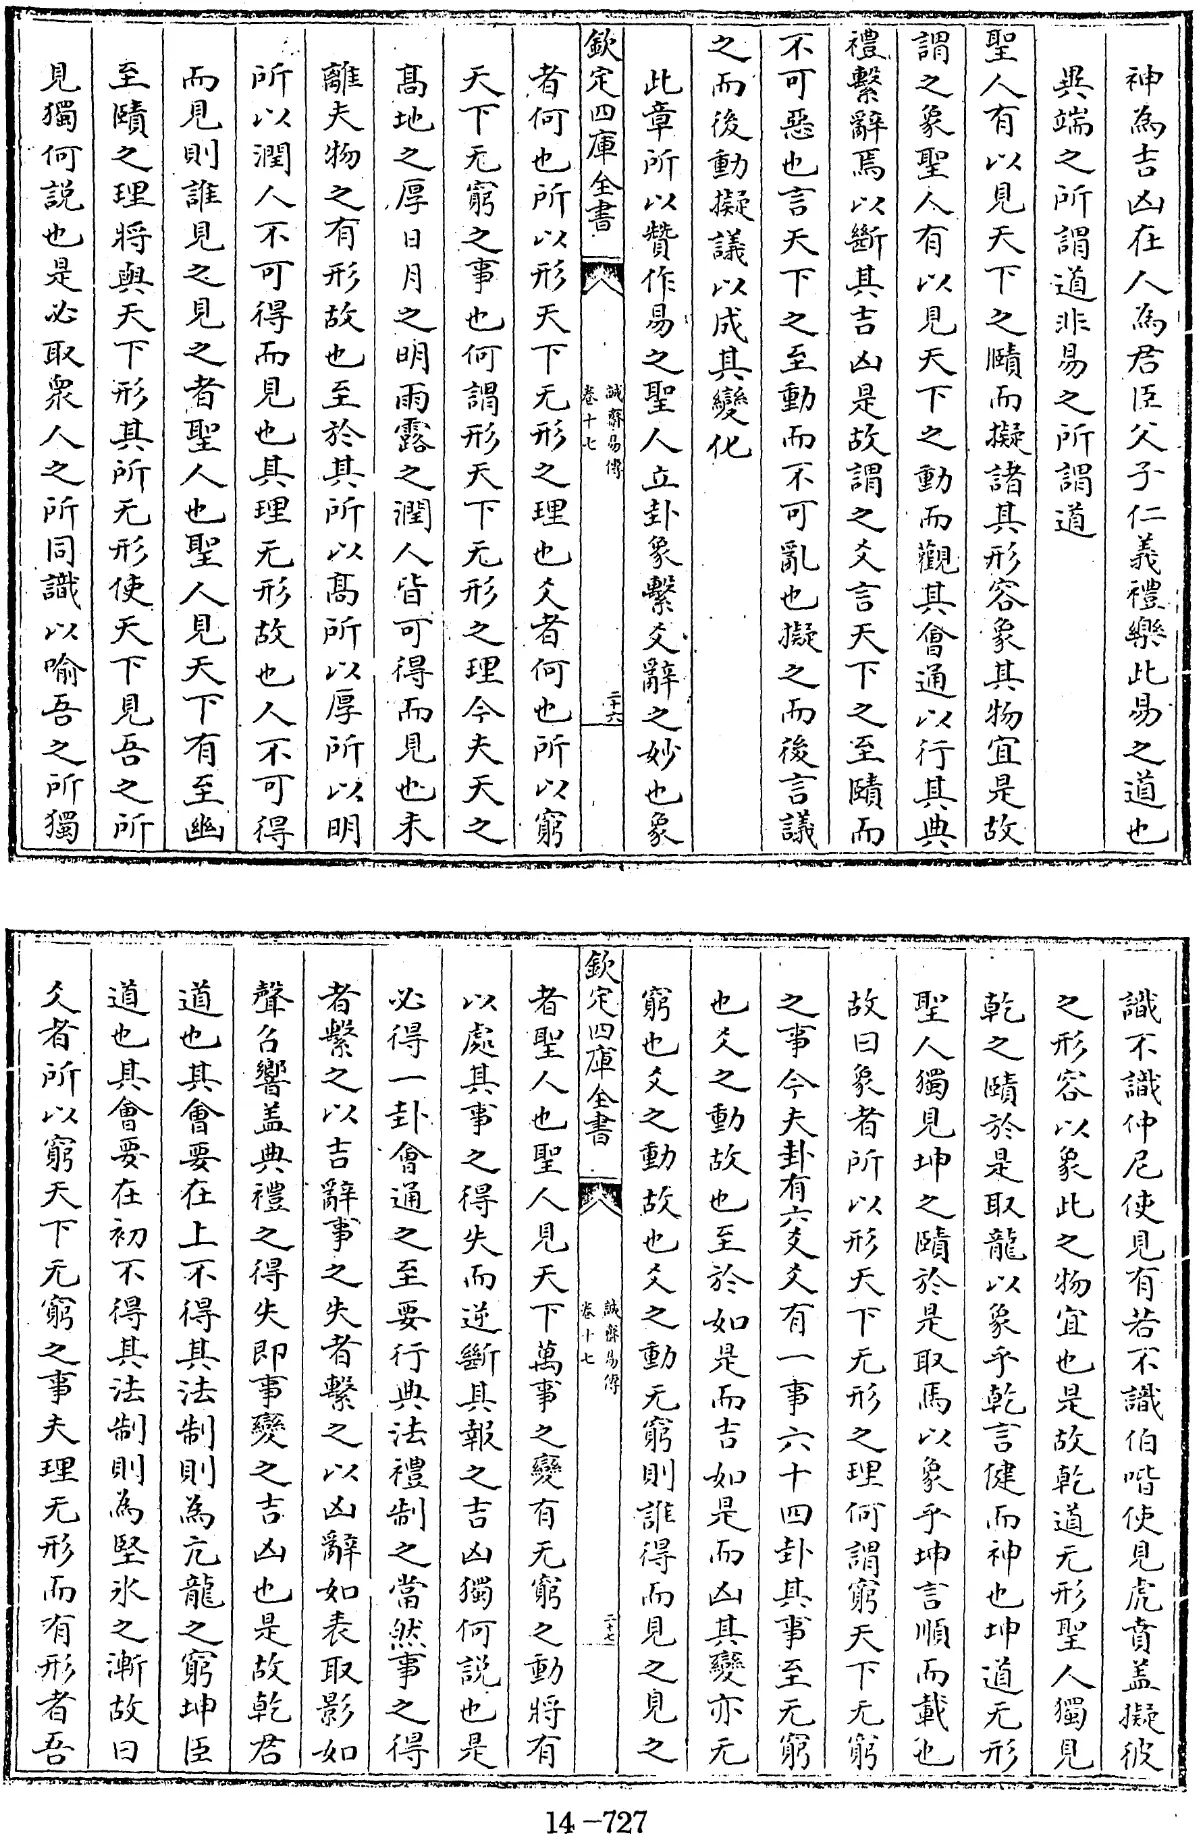 神為吉凶在人為君臣父子仁義禮樂此易之道也
異端之所謂道非易之所謂道
聖人有以見天下之賾而擬諸其形容象其物宜是故
謂之象聖人有以見天下之動而觀其會通以行其典
禮繫辭焉以斷其吉凶是故謂之爻言天下之至賾而
不可惡也言天下之至動而不可亂也擬之而後言議
之而後動擬議以成其變化
此章所以贊作易之聖人立卦象繫爻辭之妙也象
欽定四庫全書
誠齋易傳
卷十七
二十六
者何也所以形天下无形之理也爻者何也所以窮
天下无窮之事也何謂形天下无形之理今夫天之
髙地之厚日月之明雨露之潤人皆可得而見也未
離夫物之有形故也至於其所以髙所以厚所以明
所以潤人不可得而見也其理无形故也人不可得
而見則誰見之見之者聖人也聖人見天下有至幽
至賾之理將與天下形其所无形使天下見吾之所
見獨何説也是必取衆人之所同識以喻吾之所獨
識不識仲尼使見有若不識伯喈使見虎賁盖擬彼
之形容以象此之物宜也是故乾道无形聖人獨見
乾之賾於是取龍以象乎乾言健而神也坤道无形
聖人獨見坤之賾於是取馬以象乎坤言順而載也
故曰象者所以形天下无形之理何謂窮天下无窮
之事今夫卦有六爻爻有一事六十四卦其事至无窮
也爻之動故也至於如是而吉如是而凶其變亦无
窮也爻之動故也爻之動无窮則誰得而見之見之
欽定四庫全書
誠齋易傳
卷十七
二十七
者聖人也聖人見天下萬事之變有无窮之動將有
以處其事之得失而逆斷其報之吉凶獨何説也是
必得一卦會通之至要行典法禮制之當然事之得
者繫之以吉辭事之失者繫之以凶辭如表取影如
聲召響盖典禮之得失即事變之吉凶也是故乾君
道也其會要在上不得其法制則為亢龍之窮坤臣
道也其會要在初不得其法制則為堅氷之漸故曰
爻者所以窮天下无窮之事夫理无形而有形者吾
14-727